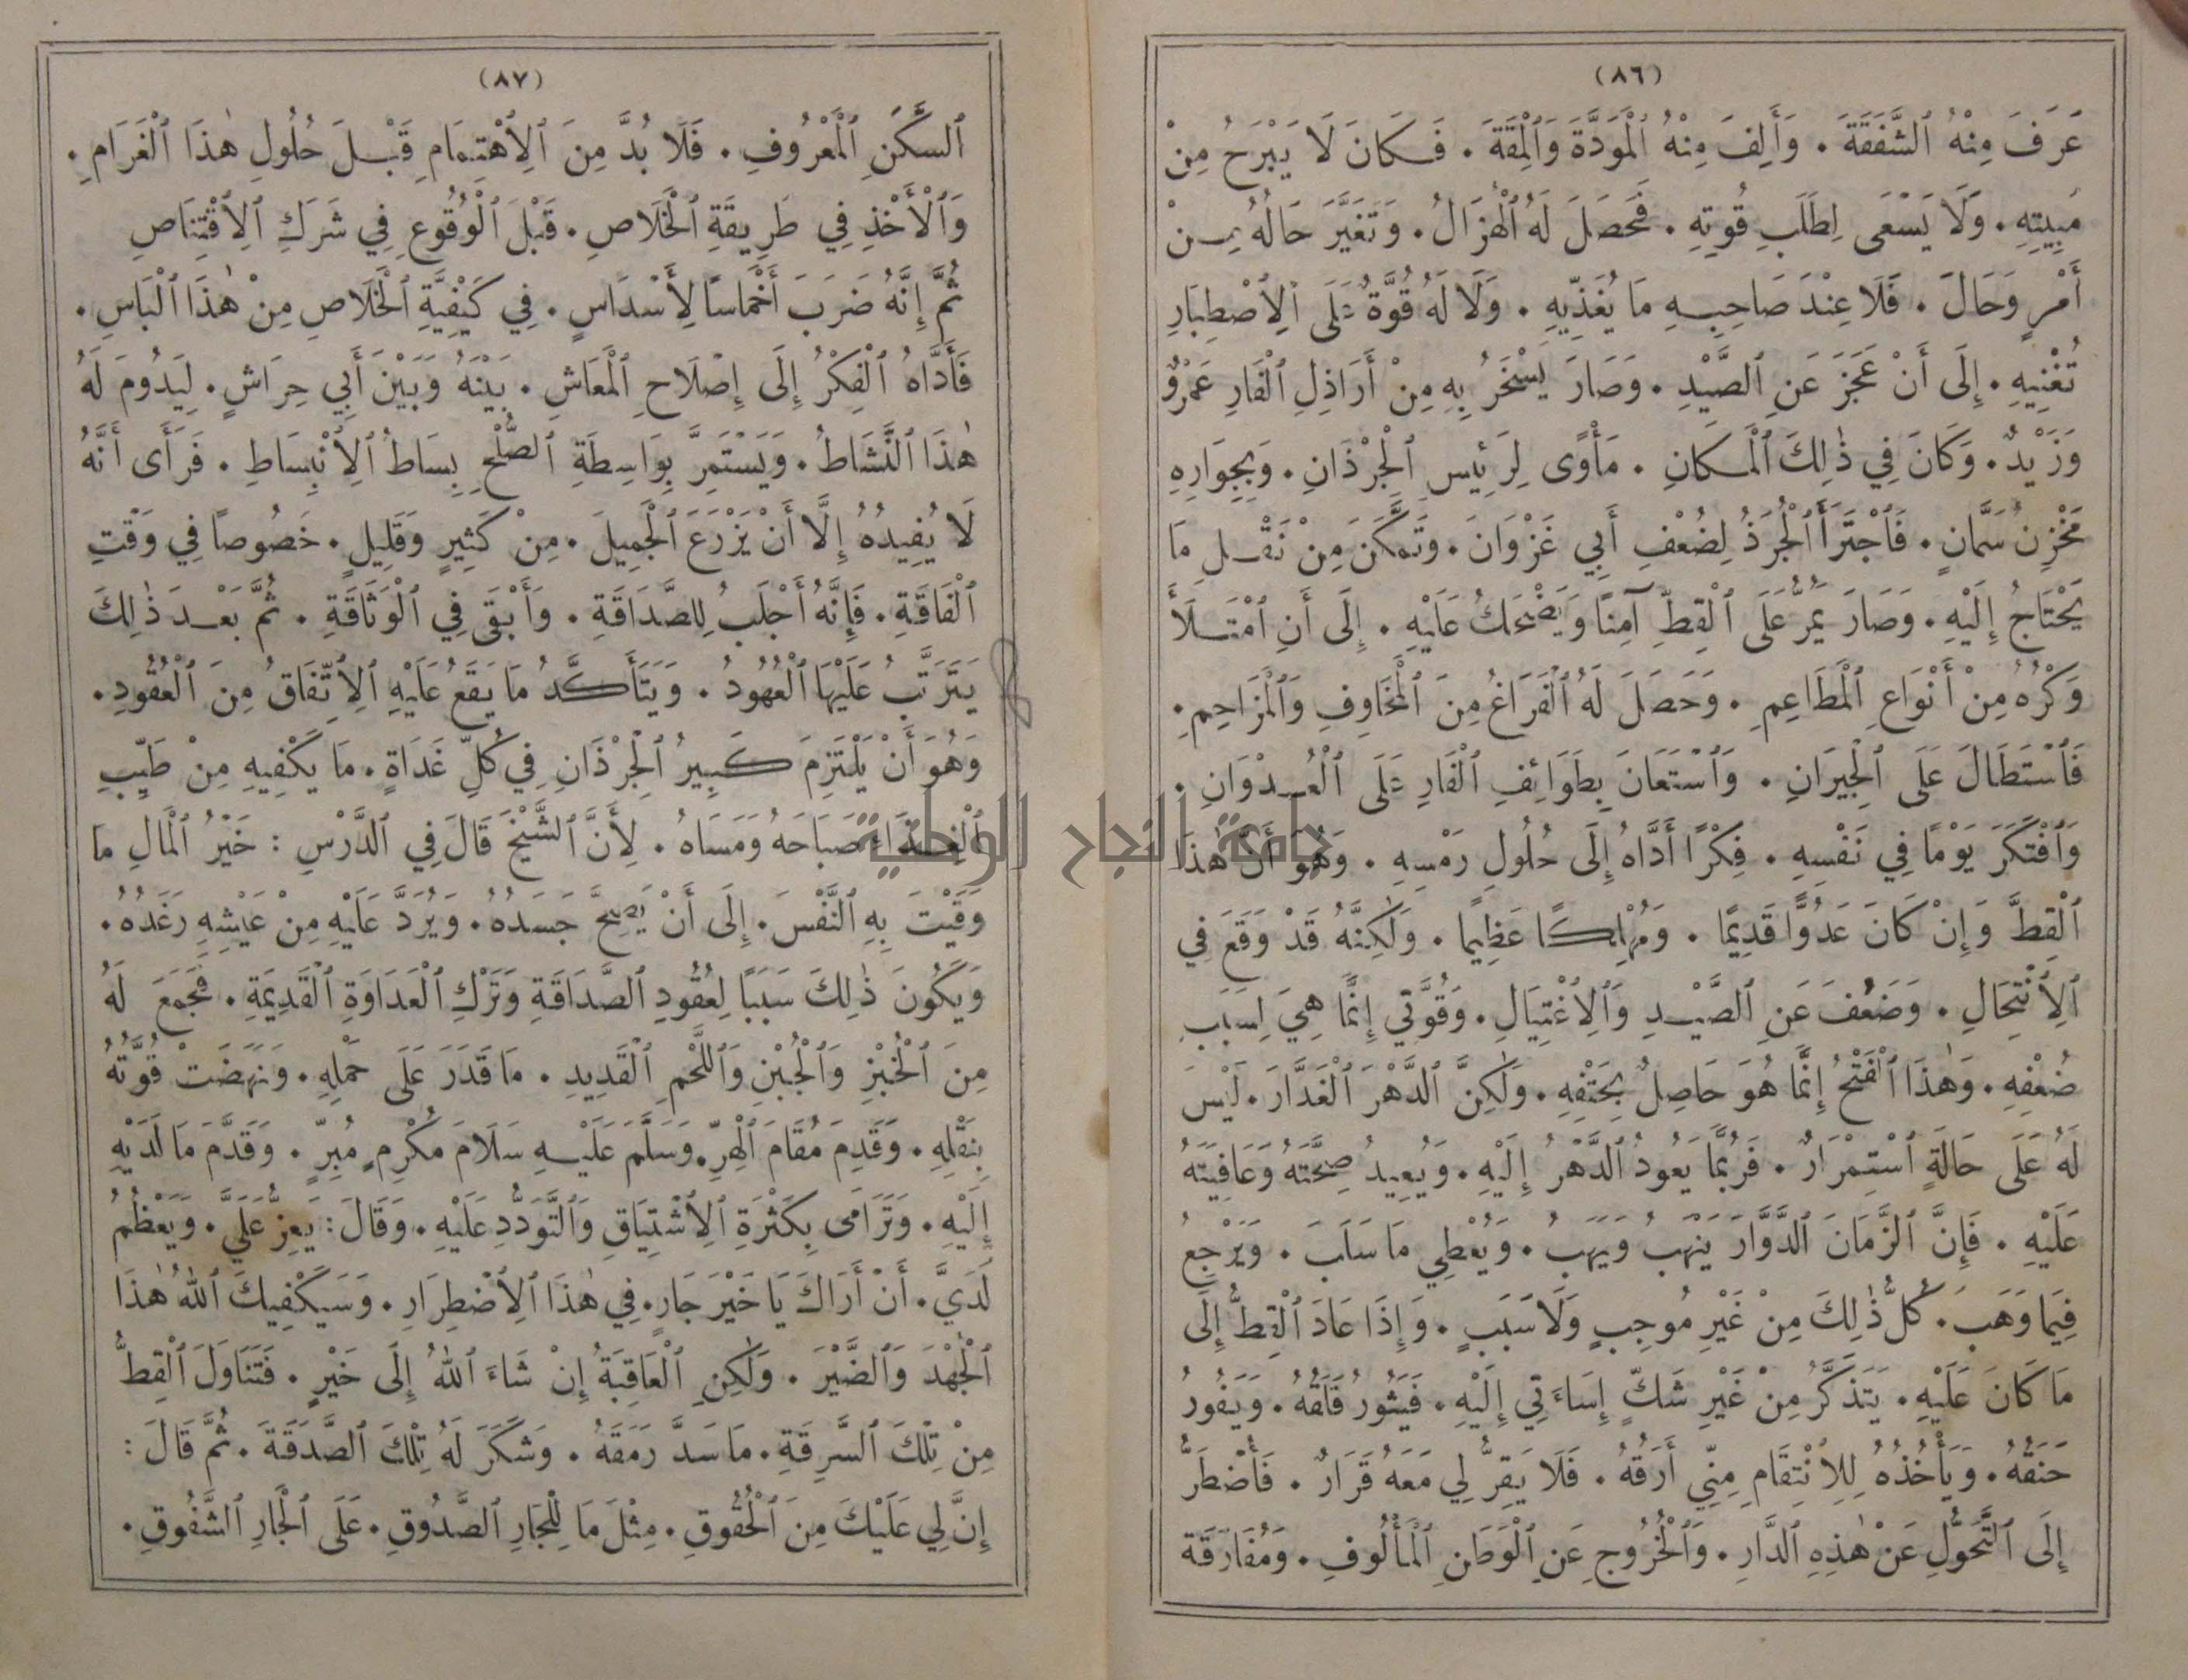 (٨٦)
عَرَفَ مِنْهُ ٱلشَّفَقَةَ . وَأَلِفَ مِنْهُ ٱلْمَوَدَّةَ وَٱلْمِقَةَ . فَكَانَ لَا يَبْرَحُ مِنْ
مَبِيتِهِ . وَلَا يَسْعَى لِطَلَبِ قُوتِهِ . فَحَصَلَ لَهُ ٱلْهُزَالُ . وَتَغَيَّرَ حَالُهُ مِنْ
أَمْرٍ وَحَالَ . فَلَا عِنْدَ صَاحِبِهِ مَا يُغَذِّيهِ . وَلَا لَهُ قُوَّةٌ عَلَى ٱلِٱصْطِبَارِ
تُغْنِيهِ . إِلَى أَنْ عَجَزَ عَنِ ٱلصَّيْدِ . وَصَارَ يَسْخَرُ بِهِ مِنْ أَرَاذِلِ ٱلْفَارِ عَمْرٌو
وَزَيْدٌ . وَكَانَ فِي ذٰلِكَ ٱلْمَكَانِ . مَأْوًى لِرَئِيسِ ٱلْجِرْذَانِ . وَبِجِوَارِهِ
مَخْزِنُ سَمَّانٍ . فَٱجْتَرَأَ ٱلْجُرَذُ لِضُعْفِ أَبِي غَزْوَانَ . وَتَمَكَّنَ مِنْ نَقْلِ مَا
يَحْتَاجُ إِلَيْهِ . وَصَارَ يَمُرُّ عَلَى ٱلْقِطِّ آمِنًا وَيَضْحَكُ عَلَيْهِ . إِلَى أَنِ ٱمْتَلَأَ
وَكْرُهُ مِنْ أَنْوَاعِ ٱلْمَطَاعِمِ . وَحَصَلَ لَهُ ٱلْفَرَاغُ مِنَ ٱلْمَخَاوِفِ وَٱلْمَزَاحِمِ .
فَٱسْتَطَالَ عَلَى ٱلْجِيرَانِ . وَٱسْتَعَانَ بِطَوَائِفِ ٱلْفَارِ عَلَى ٱلْعُدْوَانِ .
وَٱفْتَكَرَ يَوْمًا فِي نَفْسِهِ . فِكْرًا أَدَّاهُ إِلَى حُلُولِ رَمْسِهِ . وَهُوَ أَنَّ هٰذَا
ٱلْقِطَّ وَإِنْ كَانَ عَدُوًّا قَدِيمًا . وَمُهْلِكًا عَظِيمًا . وَلٰكِنَّهُ قَدْ وَقَعَ فِي
ٱلِٱنْتِحَالِ . وَضَعُفَ عَنِ ٱلصَّيْدِ وَٱلِٱغْتِيَالِ . وَقُوَّتِي إِنَّمَا هِيَ لِسَبَبِ
ضُعْفِهِ . وَهٰذَا ٱلْفَتْحُ إِنَّمَا هُوَ حَاصِلٌ بِحَتْفِهِ . وَلٰكِنَّ ٱلدَّهْرَ ٱلْغَدَّارَ . لَيْسَ
لَهُ عَلَى حَالَةٍ ٱسْتِمْرَارٌ . فَرُبَّمَا يَعُودُ ٱلدَّهْرُ إِلَيْهِ . وَيُعِيدُ صِحَّتَهُ وَعَافِيَتَهُ
عَلَيْهِ . فَإِنَّ ٱلزَّمَانَ ٱلدَّوَّارَ يَنْهَبُ وَيَهَبُ . وَيُعْطِي مَا سَلَبَ . وَيَرْجِعُ
فِيمَا وَهَبَ . كُلُّ ذٰلِكَ مِنْ غَيْرِ مُوجِبٍ وَلَا سَبَبٍ . وَإِذَا عَادَ ٱلْقِطُّ إِلَى
مَا كَانَ عَلَيْهِ . يَتَذَكَّرُ مِنْ غَيْرِ شَكٍّ إِسَاءَتِي إِلَيْهِ . فَيَثُورُ قَلَقُهُ . وَيَفُورُ
حَنَقُهُ . وَيَأْخُذُهُ لِلِٱنْتِقَامِ مِنِّي أَرَقُهُ . فَلَا يَقِرُّ لِي مَعَهُ قَرَارٌ . فَأَضْطَرُّ
إِلَى ٱلتَّحَوُّلِ عَنْ هٰذِهِ ٱلدَّارِ . وَٱلْخُرُوجِ عَنِ ٱلْوَطَنِ ٱلْمَأْلُوفِ . وَمُفَارَقَةِ
(٨٧)
ٱلسَّكَنِ ٱلْمَعْرُوفِ . فَلَا بُدَّ مِنَ ٱلِٱهْتِمَامِ قَبْلَ حُلُولِ هٰذَا ٱلْغَرَامِ .
وَٱلْأَخْذِ فِي طَرِيقَةِ ٱلْخَلَاصِ . قَبْلَ ٱلْوُقُوعِ فِي شَرَكِ ٱلِٱقْتِنَاصِ
ثُمَّ إِنَّهُ ضَرَبَ أَخْمَاسًا لِأَسْدَاسٍ . فِي كَيْفِيَّةِ ٱلْخَلَاصِ مِنْ هٰذَا ٱلْبَاسِ .
فَأَدَّاهُ ٱلْفِكْرُ إِلَى إِصْلَاحِ ٱلْمَعَاشِ . بَيْنَهُ وَبَيْنَ أَبِي حِرَاشٍ . لِيَدُومَ لَهُ
هٰذَا ٱلنَّشَاطُ . وَيَسْتَمِرَّ بِوَاسِطَةِ ٱلصُّلْحِ بِسَاطُ ٱلِٱنْبِسَاطِ . فَرَأَى أَنَّهُ
لَا يُفِيدُهُ إِلَّا أَنْ يَزْرَعَ ٱلْجَمِيلَ . مِنْ كَثِيرٍ وَقَلِيلٍ . خَصُوصًا فِي وَقْتِ
ٱلْفَاقَةِ . فَإِنَّهُ أَجْلَبُ لِلصَّدَاقَةِ . وَأَبْقَى فِي ٱلْوَثَاقَةِ . ثُمَّ بَعْدَ ذٰلِكَ
يَتَرَتَّبُ عَلَيْهَا ٱلْعُهُودُ . وَيَتَأَكَّدُ مَا يَقَعُ عَلَيْهِ ٱلِٱتِّفَاقُ مِنَ ٱلْعُقُودِ .
وَهُوَ أَنْ يَلْتَزِمَ كَبِيرُ ٱلْجِرْذَانِ فِي كُلِّ غَدَاةٍ . مَا يَكْفِيهِ مِنْ طَيِّبِ
ٱلْغِذَاءِ صَبَاحَهُ وَمَسَاهُ . لِأَنَّ ٱلشَّيْخَ قَالَ فِي ٱلدَّرْسِ : خَيْرُ ٱلْمَالِ مَا
وَقَيْتَ بِهِ ٱلنَّفْسَ . إِلَى أَنْ يَصِحَّ جَسَدُهُ . وَيُرَدَّ عَلَيْهِ مِنْ عَيْشِهِ رَغَدُهُ .
وَيَكُونَ ذٰلِكَ سَبَبًا لِعُقُودِ ٱلصَّدَاقَةِ وَتَرْكِ ٱلْعَدَاوَةِ ٱلْقَدِيمَةِ . فَجَمَعَ لَهُ
مِنَ ٱلْخُبْزِ وَٱلْجُبْنِ وَٱللَّحْمِ ٱلْقَدِيدِ . مَا قَدَرَ عَلَى حَمْلِهِ . وَنَهَضَتْ قُوَّتُهُ
بِنَقْلِهِ . وَقَدِمَ مُقَامَ ٱلْهِرِّ . وَسَلَّمَ عَلَيْهِ سَلَامَ مُكْرِمٍ مُبِرٍّ . وَقَدَّمَ مَا لَدَيْهِ
إِلَيْهِ . وَتَرَامَى بِكَثْرَةِ ٱلِٱشْتِيَاقِ وَٱلتَّوَدُّدِ عَلَيْهِ . وَقَالَ : يَعِزُّ عَلَيَّ . وَيَعْظُمُ
لَدَيَّ . أَنْ أَرَاكَ يَا خَيْرَ جَارٍ . فِي هٰذَا ٱلِٱضْطِرَارِ . وَسَيَكْفِيكَ ٱللهُ هٰذَا
ٱلْجُهْدَ وَٱلضَّيْرَ . وَلٰكِنِ ٱلْعَاقِبَةُ إِنْ شَاءَ ٱللهُ إِلَى خَيْرٍ . فَتَنَاوَلَ ٱلْقِطُّ
مِنْ تِلْكَ ٱلسَّرِقَةِ . مَا سَدَّ رَمَقَهُ . وَشَكَرَ لَهُ تِلْكَ ٱلصَّدَقَةَ . ثُمَّ قَالَ :
إِنَّ لِي عَلَيْكَ مِنَ ٱلْحُقُوقِ . مِثْلَ مَا لِلْجَارِ ٱلصَّدُوقِ . عَلَى ٱلْجَارِ ٱلشَّفُوقِ .
جامعة النجاح الوطنية